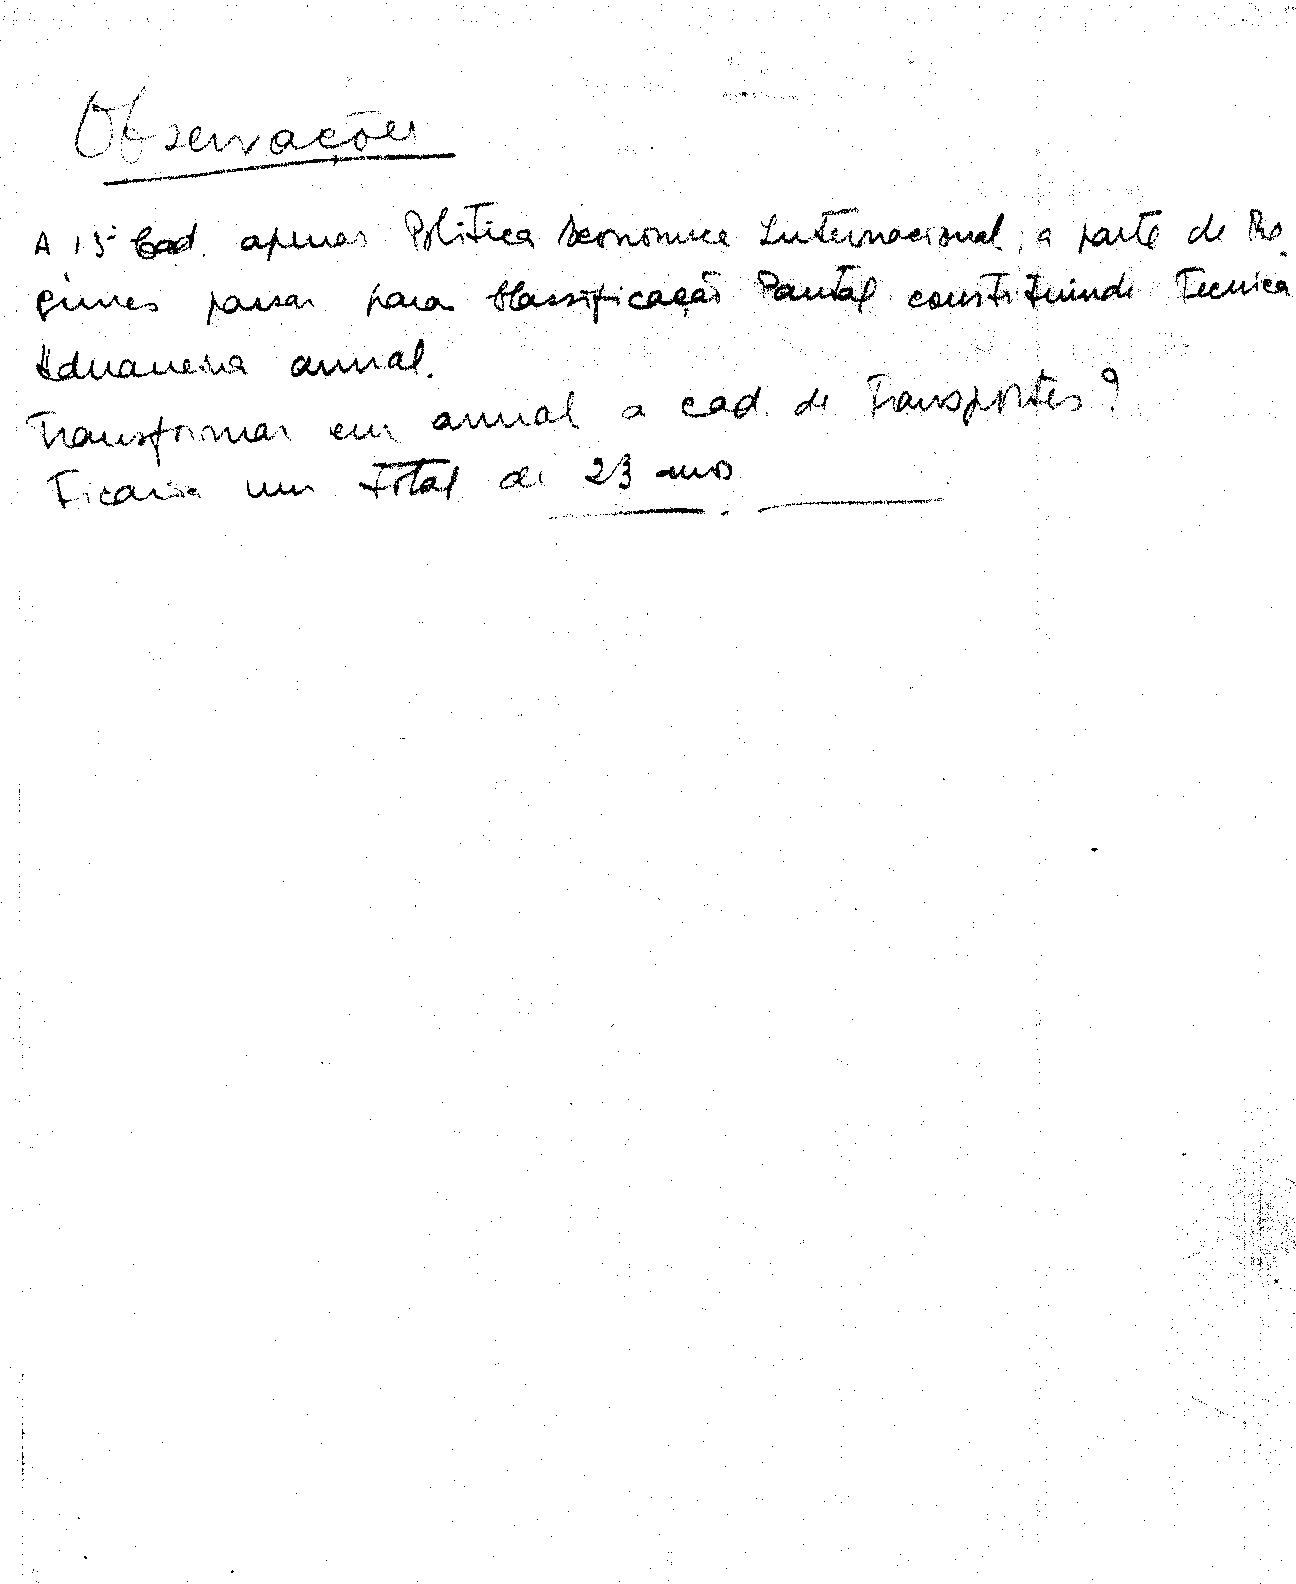 Observações
A 15ª Cad. apenas Politica Economica Internacional, a parte de Re
gimes passar para Classificação Pautal constituindo Tecnica
Aduaneira annal.
Transformar em annal a cad. de Transportes?
Ficaria um Total de 23 anos